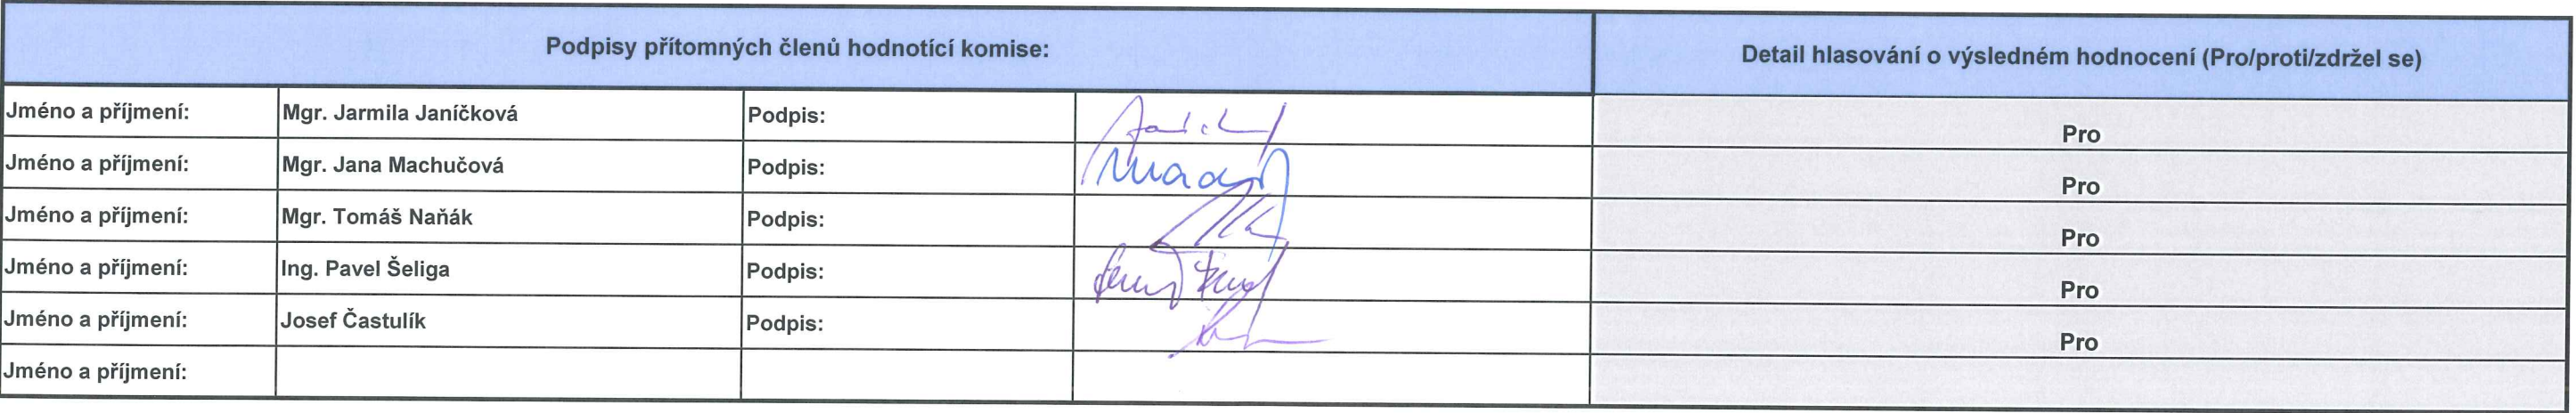 Podpisy přítomných členů hodnotící komise: Detail hlasování o výsledném hodnocení (Pro/proti/zdržel se)
Jméno a příjmení: Mgr. Jarmila Janíčková Podpis: Pro
Jméno a příjmení: Mgr. Jana Machučová Podpis: Pro
Jméno a příjmení: Mgr. Tomáš Naňák Podpis: Pro
Jméno a příjmení: Ing. Pavel Šeliga Podpis: Pro
Jméno a příjmení: Josef Častulík Podpis: Pro
Jméno a příjmení: